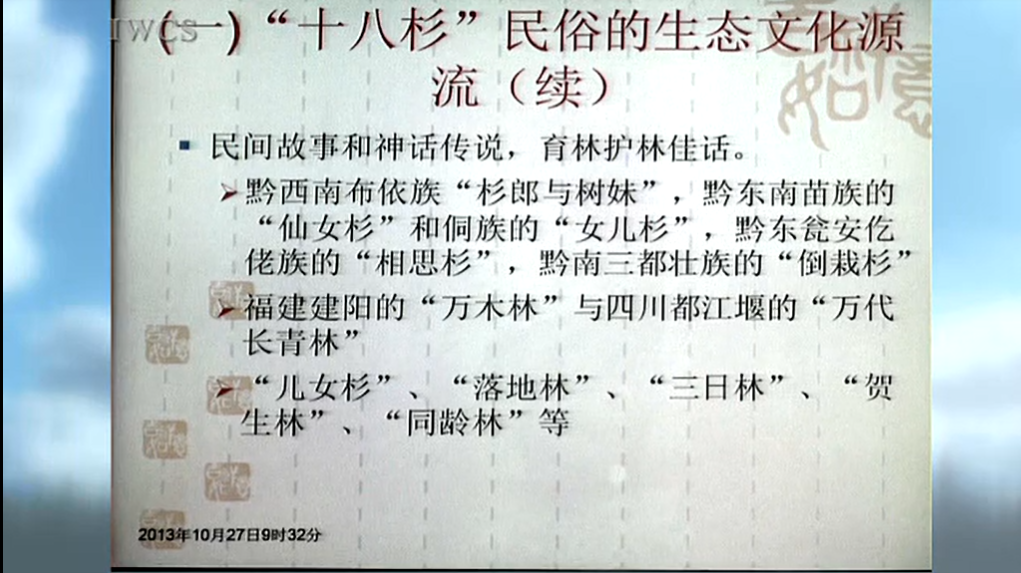 IWCS
(一)“十八杉”民俗的生态文化源
流（续）
民间故事和神话传说，育林护林佳话。
黔西南布依族“杉郎与树妹”，黔东南苗族的
“仙女杉”和侗族的“女儿杉”，黔东瓮安仡
佬族的“相思杉”，黔南三都壮族的“倒栽杉”
福建建阳的“万木林”与四川都江堰的“万代
长青林”
“儿女杉”、“落地林”、“三日林”、“贺
生林”、“同龄林”等
2013年10月27日9时32分